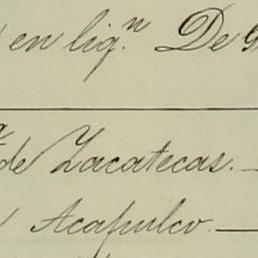 en liq.n De
de Zacatecas.
Acapulco